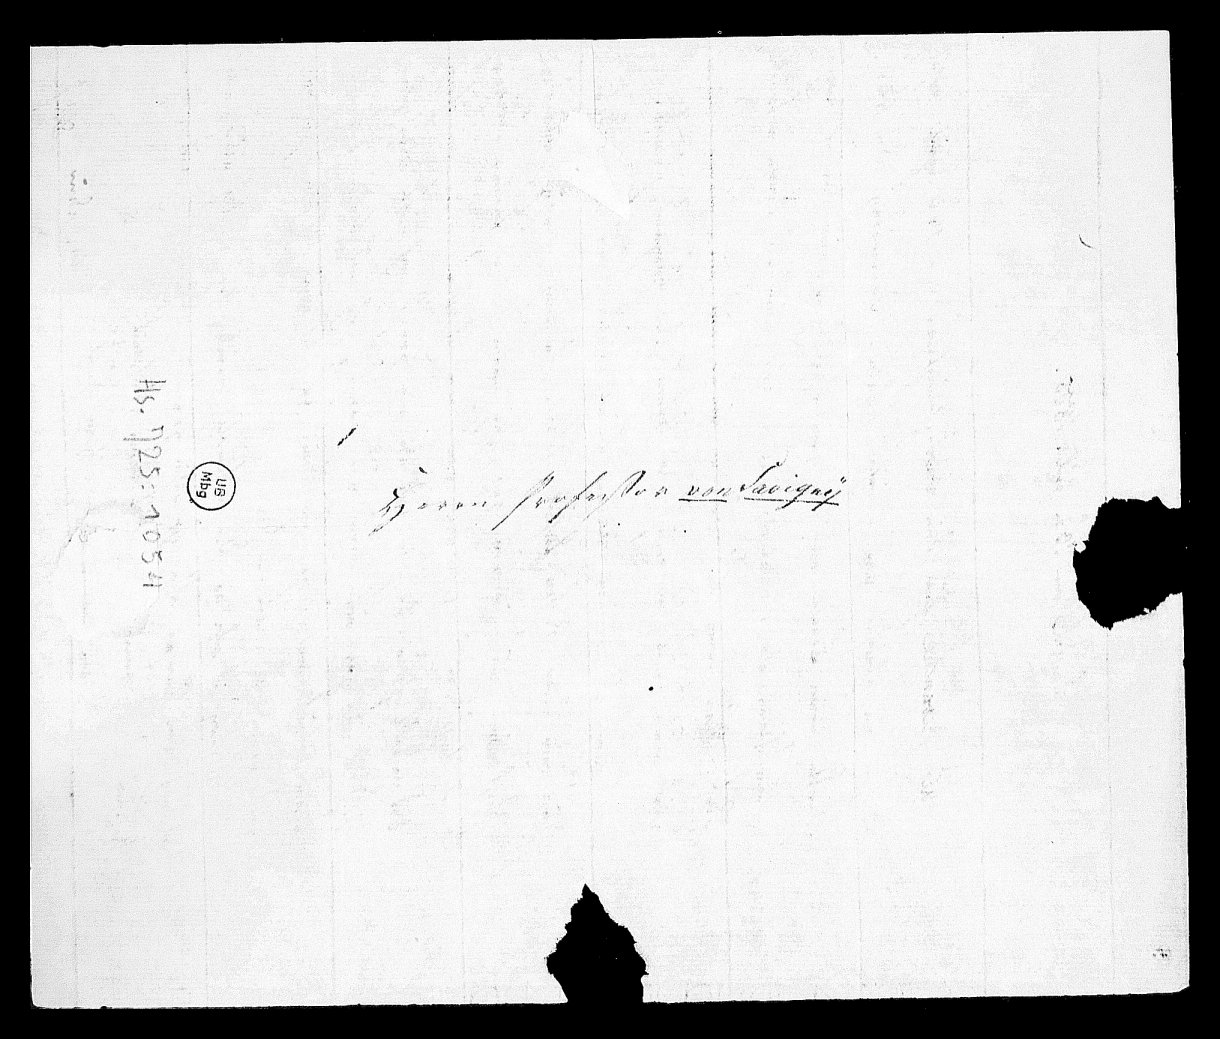 Herrn Professor von Savigny
Hs. 725:1054
UB
Mbg